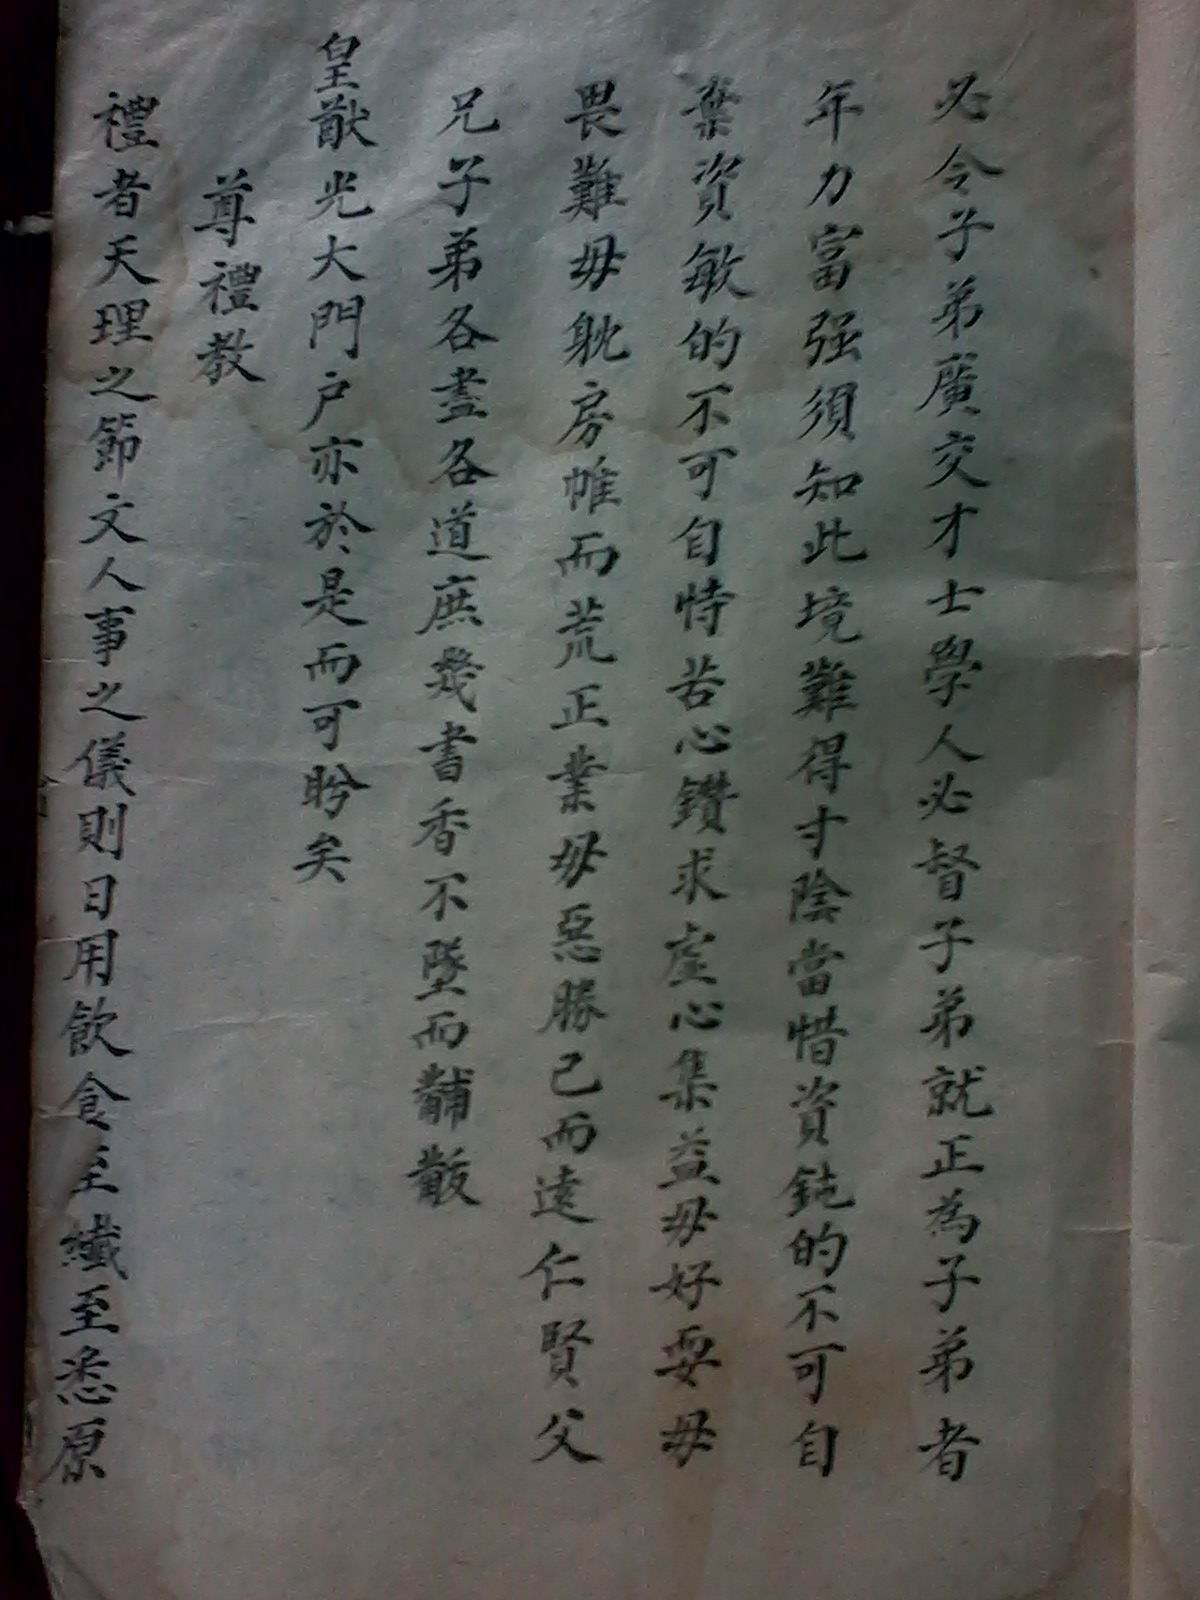 必令子弟廣交才士學人必督子弟就正為子弟者
年力富强須知此境難得寸陰當惜資鈍的不可自
棄資敏的不可自恃苦心鑽求虛心集益毋好耍毋
畏難毋躭房帷而荒正業毋惡勝己而遠仁賢父
兄子弟各盡各道庶幾書香不墜而黼黻
皇猷光大門戶亦於是而可盼矣
尊禮教
禮者天理之節文人事之儀則日用飲食至纖至悉原